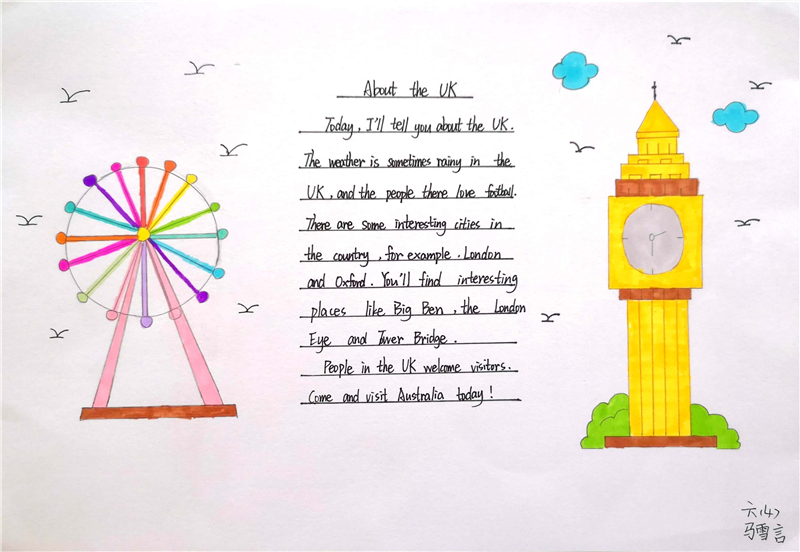 About the UK
Today, I'll tell you about the UK.
The weather is sometimes rainy in the
UK, and the people there love football.
There are some interesting cities in
the country, for example. London
and Oxford. You'll find interesting
places like Big Ben, the London
Eye and Tower Bridge.
People in the UK welcome visitors.
Come and visit Australia today!
六(4)
马雪言